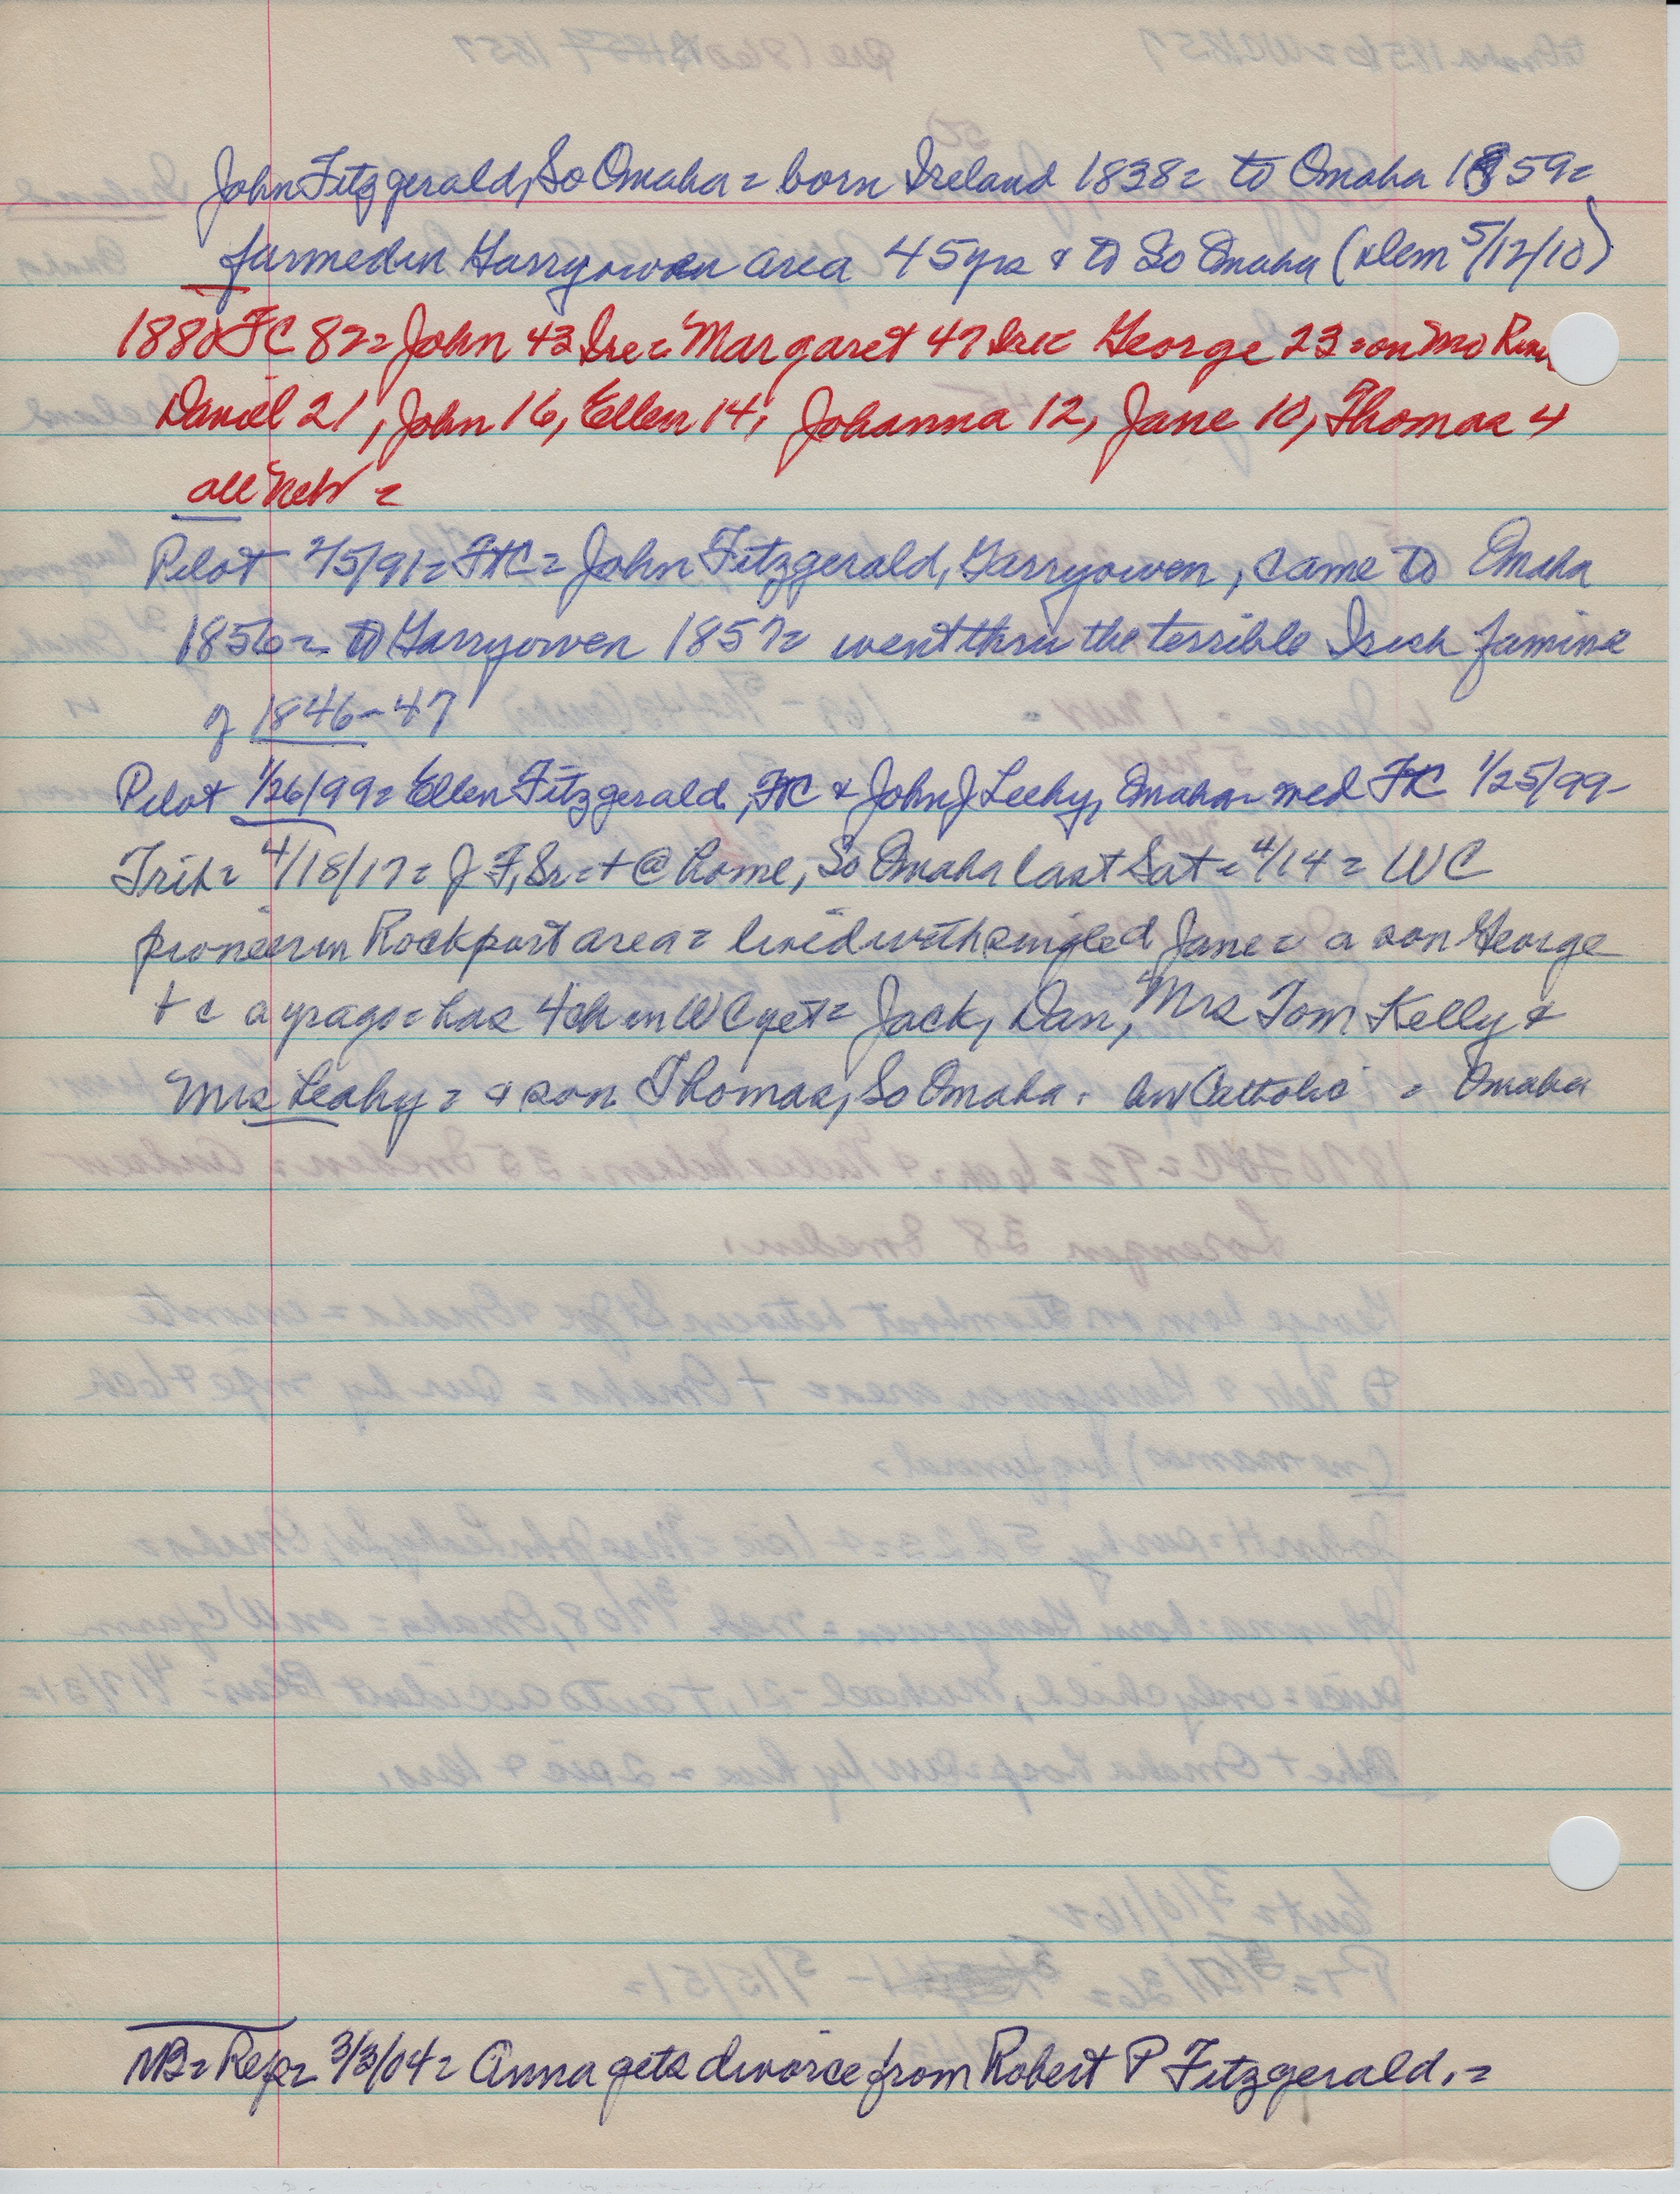 John Fitzgerald, So Omaha = born Ireland 1838 = to Omaha 1859 =
farmed in Garryowen area 45 yrs & to So Omaha (Dem 5/12/10)
1880 FC 82 = John 43 Ire = Margaret 47 Ire = George 23 = on Mo
Daniel 21, John 16, Ellen 14, Johanna 12, Jane 10, Thomas 4
all Neb =
Pilot 2/5/91 = FtC = John Fitzgerald, Garryowen, came to Omaha
1856 = to Garryowen 1857 = went thru the terrible Irish famine
of 1846-47
Pilot 1/26/99 = Ellen Fitzgerald, FtC & John J Leehy, Omaha = med FtC 1/25/99 -
Trib = 4/18/17 = J F, Sr = + @ home, So Omaha last Sat = 4/14 = WC
pioneer in Rockport area = lived with single d Jane = a son George
+ c a yr ago = has 4 ch in WC yet = Jack, Dan, Mrs Tom Kelly &
Mrs Leahy = & son Thomas, So Omaha. Catholic = Omaha
NB = Rep = 3/3/04 = Anna gets divorce from Robert P Fitzgerald. =